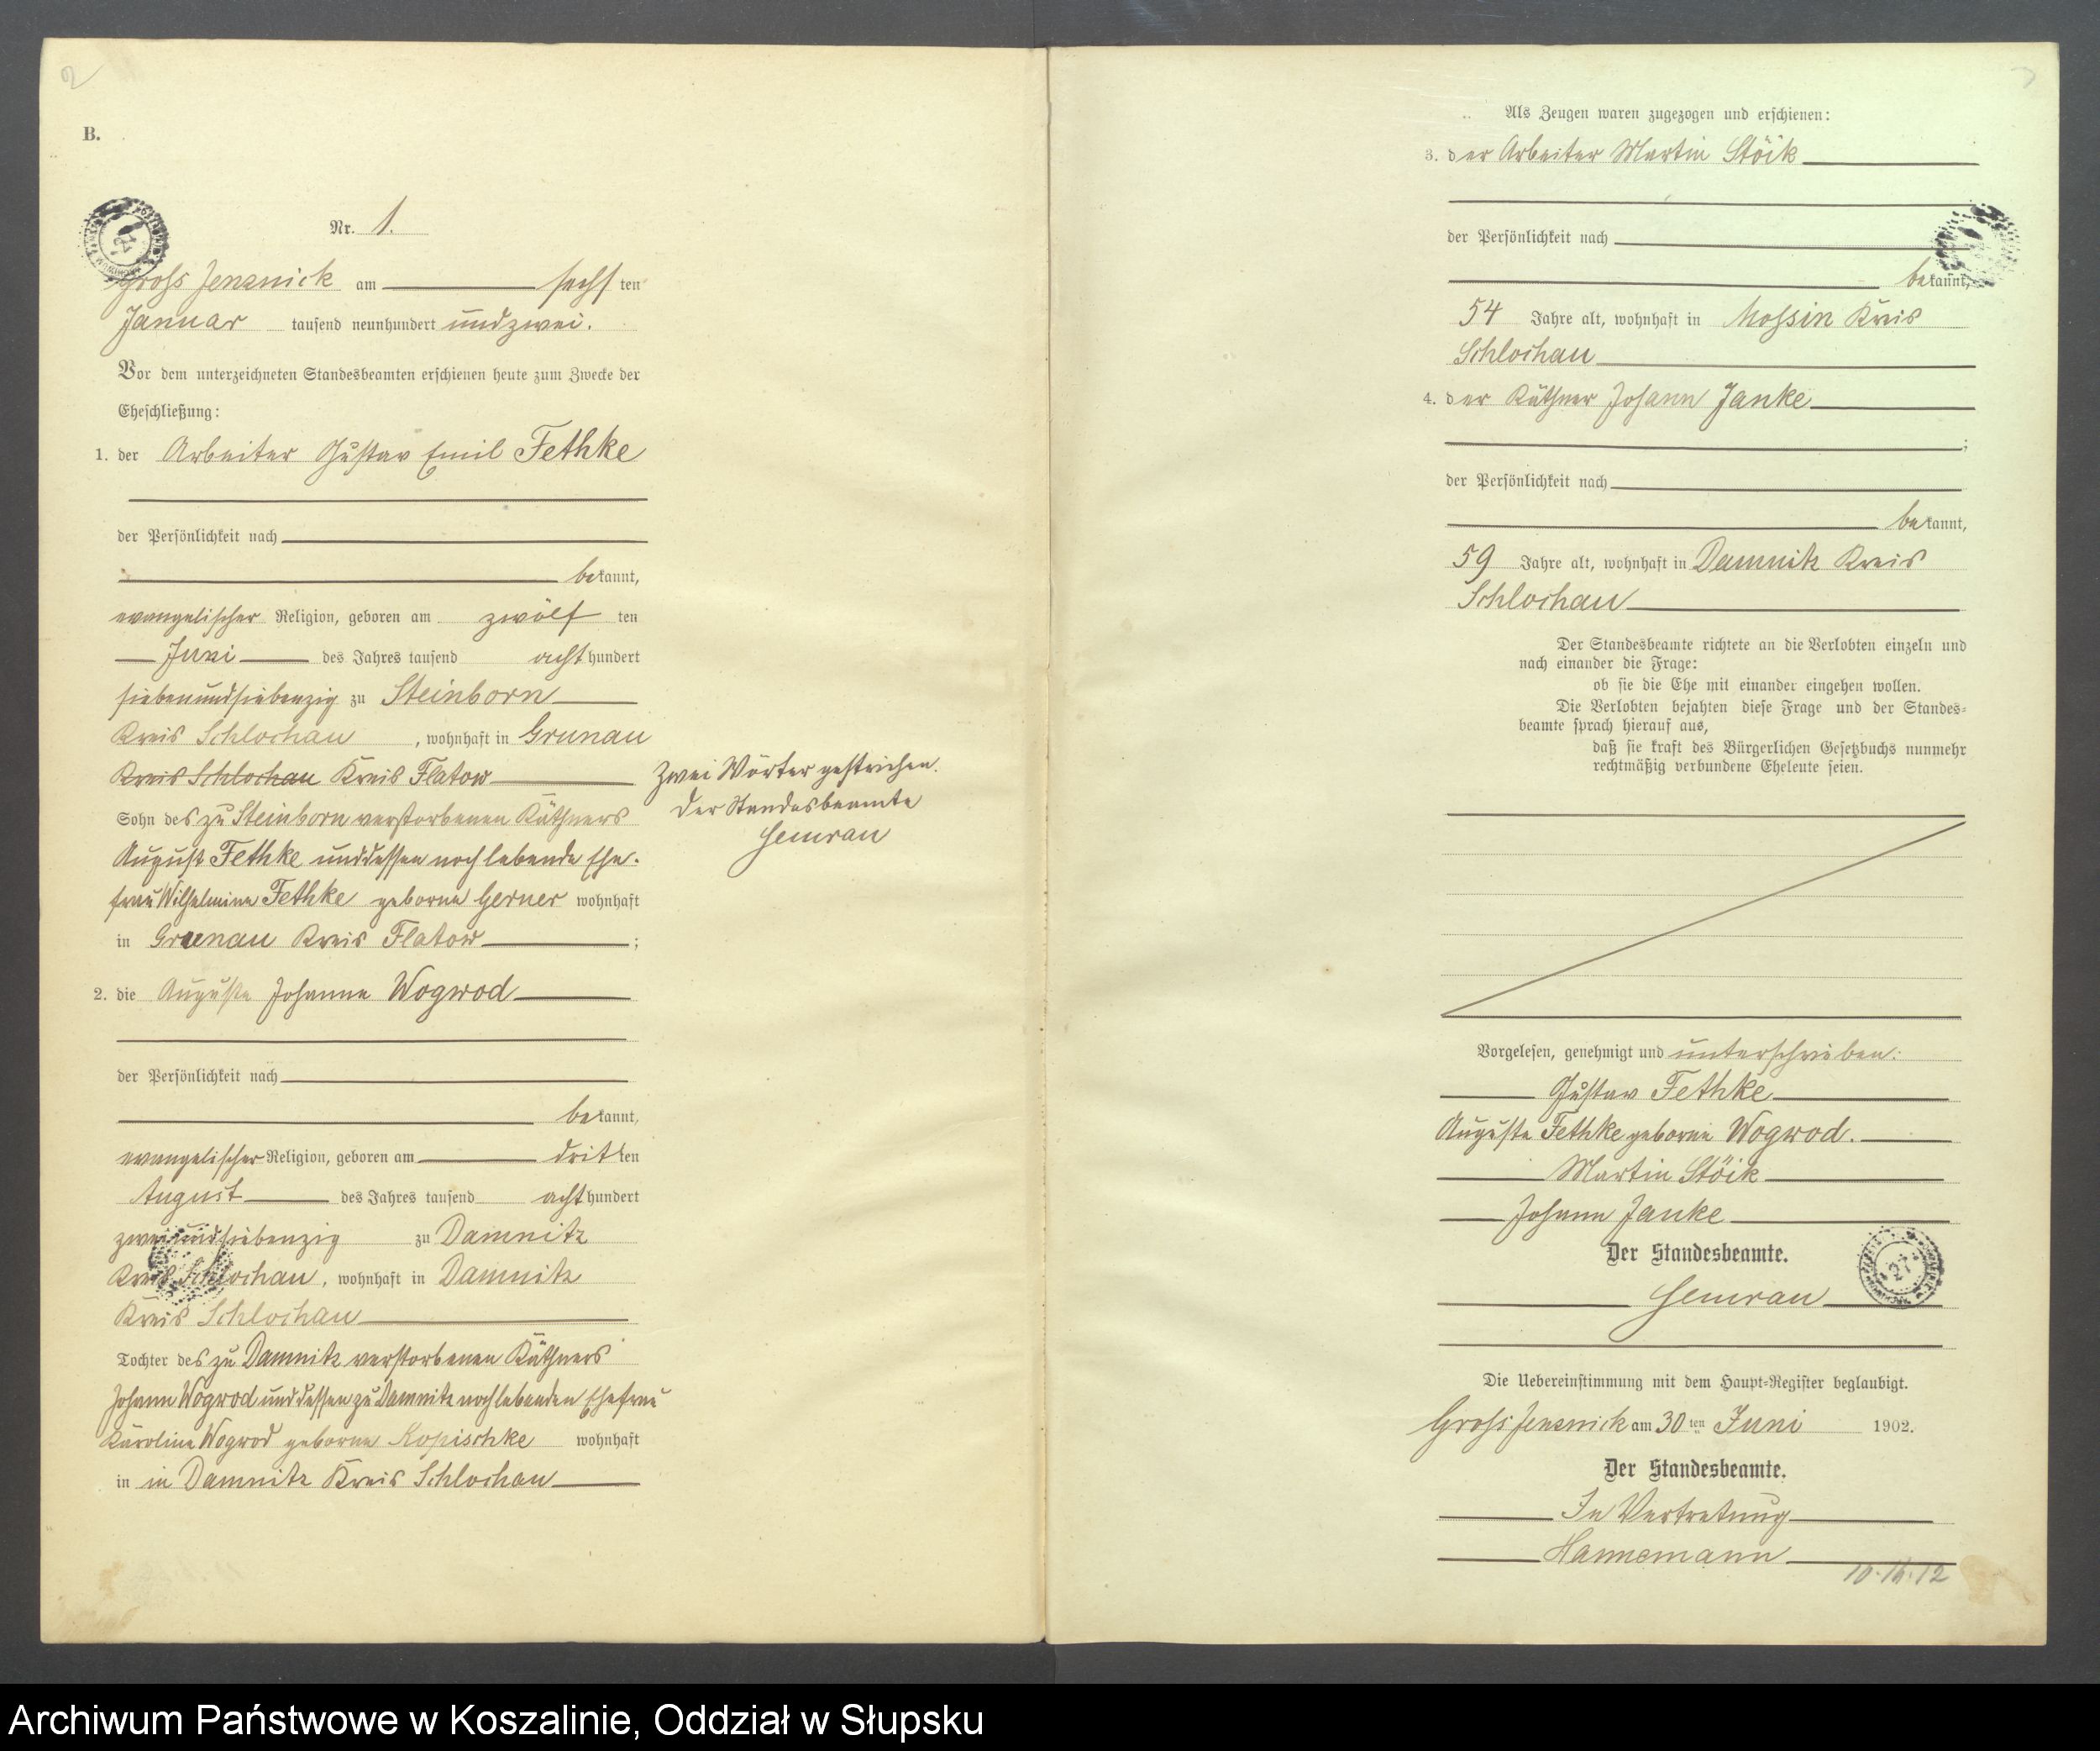 2
B.
Nr. 1.
Gross Jenznick am sechs ten
Januar tausend neunhundert und zwei.
Vor dem unterzeichneten Standesbeamten erschienen heute zum Zwecke der
Eheschließung:
1. der Arbeiter Gustav Emil Fethke
der Persönlichkeit nach
bekannt,
evangelischer Religion, geboren am zwölf ten
Juni des Jahres tausend acht hundert
siebenundsiebenzig zu Steinborn
Kreis Schlochau, wohnhaft in Grunau
Kreis Schlochau Kreis Flatow
Sohn des zu Steinborn verstorbenen Käthners
August Fethke und dessen noch lebende Ehe-
frau Wilhelmine Fethke geborne Gerner wohnhaft
in Grunau Kreis Flatow;
Zwei Wörter gestrichen.
Der Standesbeamte
Semrau
2. die Auguste Johanna Wogwod
der Persönlichkeit nach
bekannt,
evangelischer Religion, geboren am dritten
August des Jahres tausend acht hundert
zweiundsiebenzig zu Damnitz
Kreis Schlochau, wohnhaft in Damnitz
Kreis Schlochau
Tochter des zu Damnitz verstorbenen Käthners
Johann Wogwod und dessen zu Damnitz noch lebenden Ehefrau
Karoline Wogwod geborne Kopischke wohnhaft
in in Damnitz Kreis Schlochau
Als Zeugen waren zugezogen und erschienen:
3. der Arbeiter Martin Stöik
der Persönlichkeit nach
bekannt,
54 Jahre alt, wohnhaft in Mossin Kreis
Schlochau
4. der Käthner Johann Janke
;
der Persönlichkeit nach
bekannt,
59 Jahre alt, wohnhaft in Damnitz Kreis
Schlochau
Der Standesbeamte richtete an die Verlobten einzeln und
nach einander die Frage:
ob sie die Ehe mit einander eingehen wollen.
Die Verlobten bejahten diese Frage und der Standes-
beamte sprach hierauf aus,
daß sie kraft des Bürgerlichen Gesetzbuchs nunmehr
rechtmäßig verbundene Eheleute seien.
Vorgelesen, genehmigt und unterschrieben:
Gustav Fethke
Auguste Fethke geborne Wogwod.
Martin Stöik
Johann Janke
Der Standesbeamte.
Semrau
Die Uebereinstimmung mit dem Haupt-Register beglaubigt.
Gross Jenznick am 30 ten Juni 1902.
Der Standesbeamte.
In Vertretung
Hannemann
Archiwum Państwowe w Koszalinie, Oddział w Słupsku